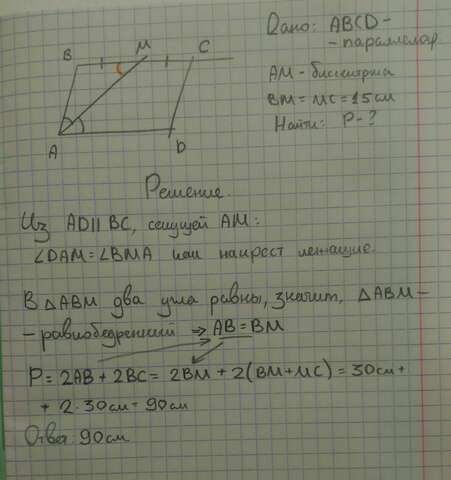 Дано: ABCD -
- параллелогр
AM - биссектриса
BM = MC = 15 см
Найти: P - ?
B M C
A D
Решение.
Из AD || BC, секущей AM:
∠DAM = ∠BMA как накрест лежащие.
В △ABM два угла равны, значит, △ABM -
- равнобедренный ⇒ AB = BM
P = 2AB + 2BC = 2BM + 2(BM + MC) = 30 см +
+ 2·30 см = 90 см
Ответ: 90 см